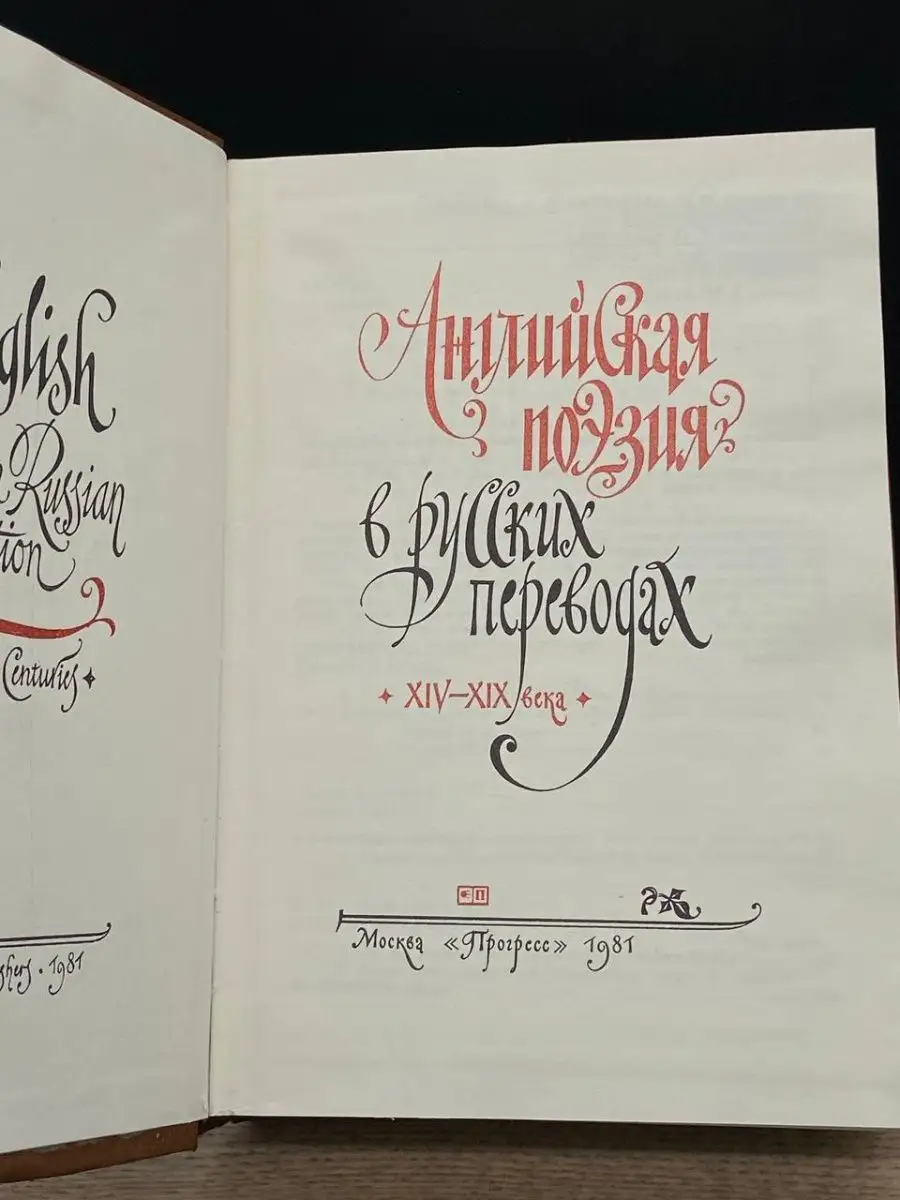 glish
Russian
tion
Centuries
shers · 1981
Английская
поэзия
в русских
переводах
XIV–XIX века
Москва «Прогресс» 1981